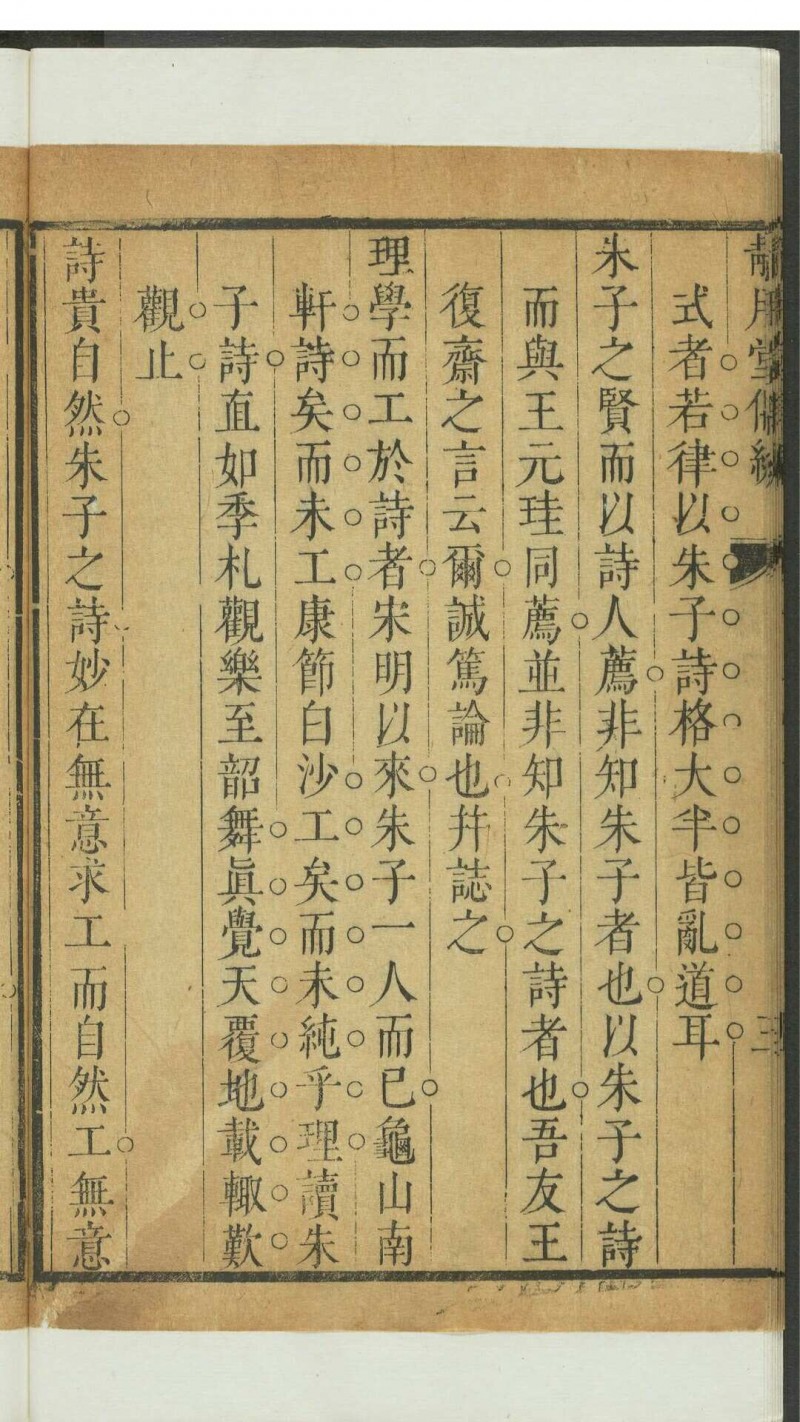 式者若律以朱子詩格大半皆亂道耳
朱子之賢而以詩人薦非知朱子者也以朱子之詩
而與王元珪同薦並非知朱子之詩者也吾友王
復齋之言云爾誠篤論也幷誌之
理學而工於詩者宋明以來朱子一人而已龜山南
軒詩矣而未工康節白沙工矣而未純乎理讀朱
子詩直如季札觀樂至韶舞眞覺天覆地載輙歎
觀止
詩貴自然朱子之詩妙在無意求工而自然工無意